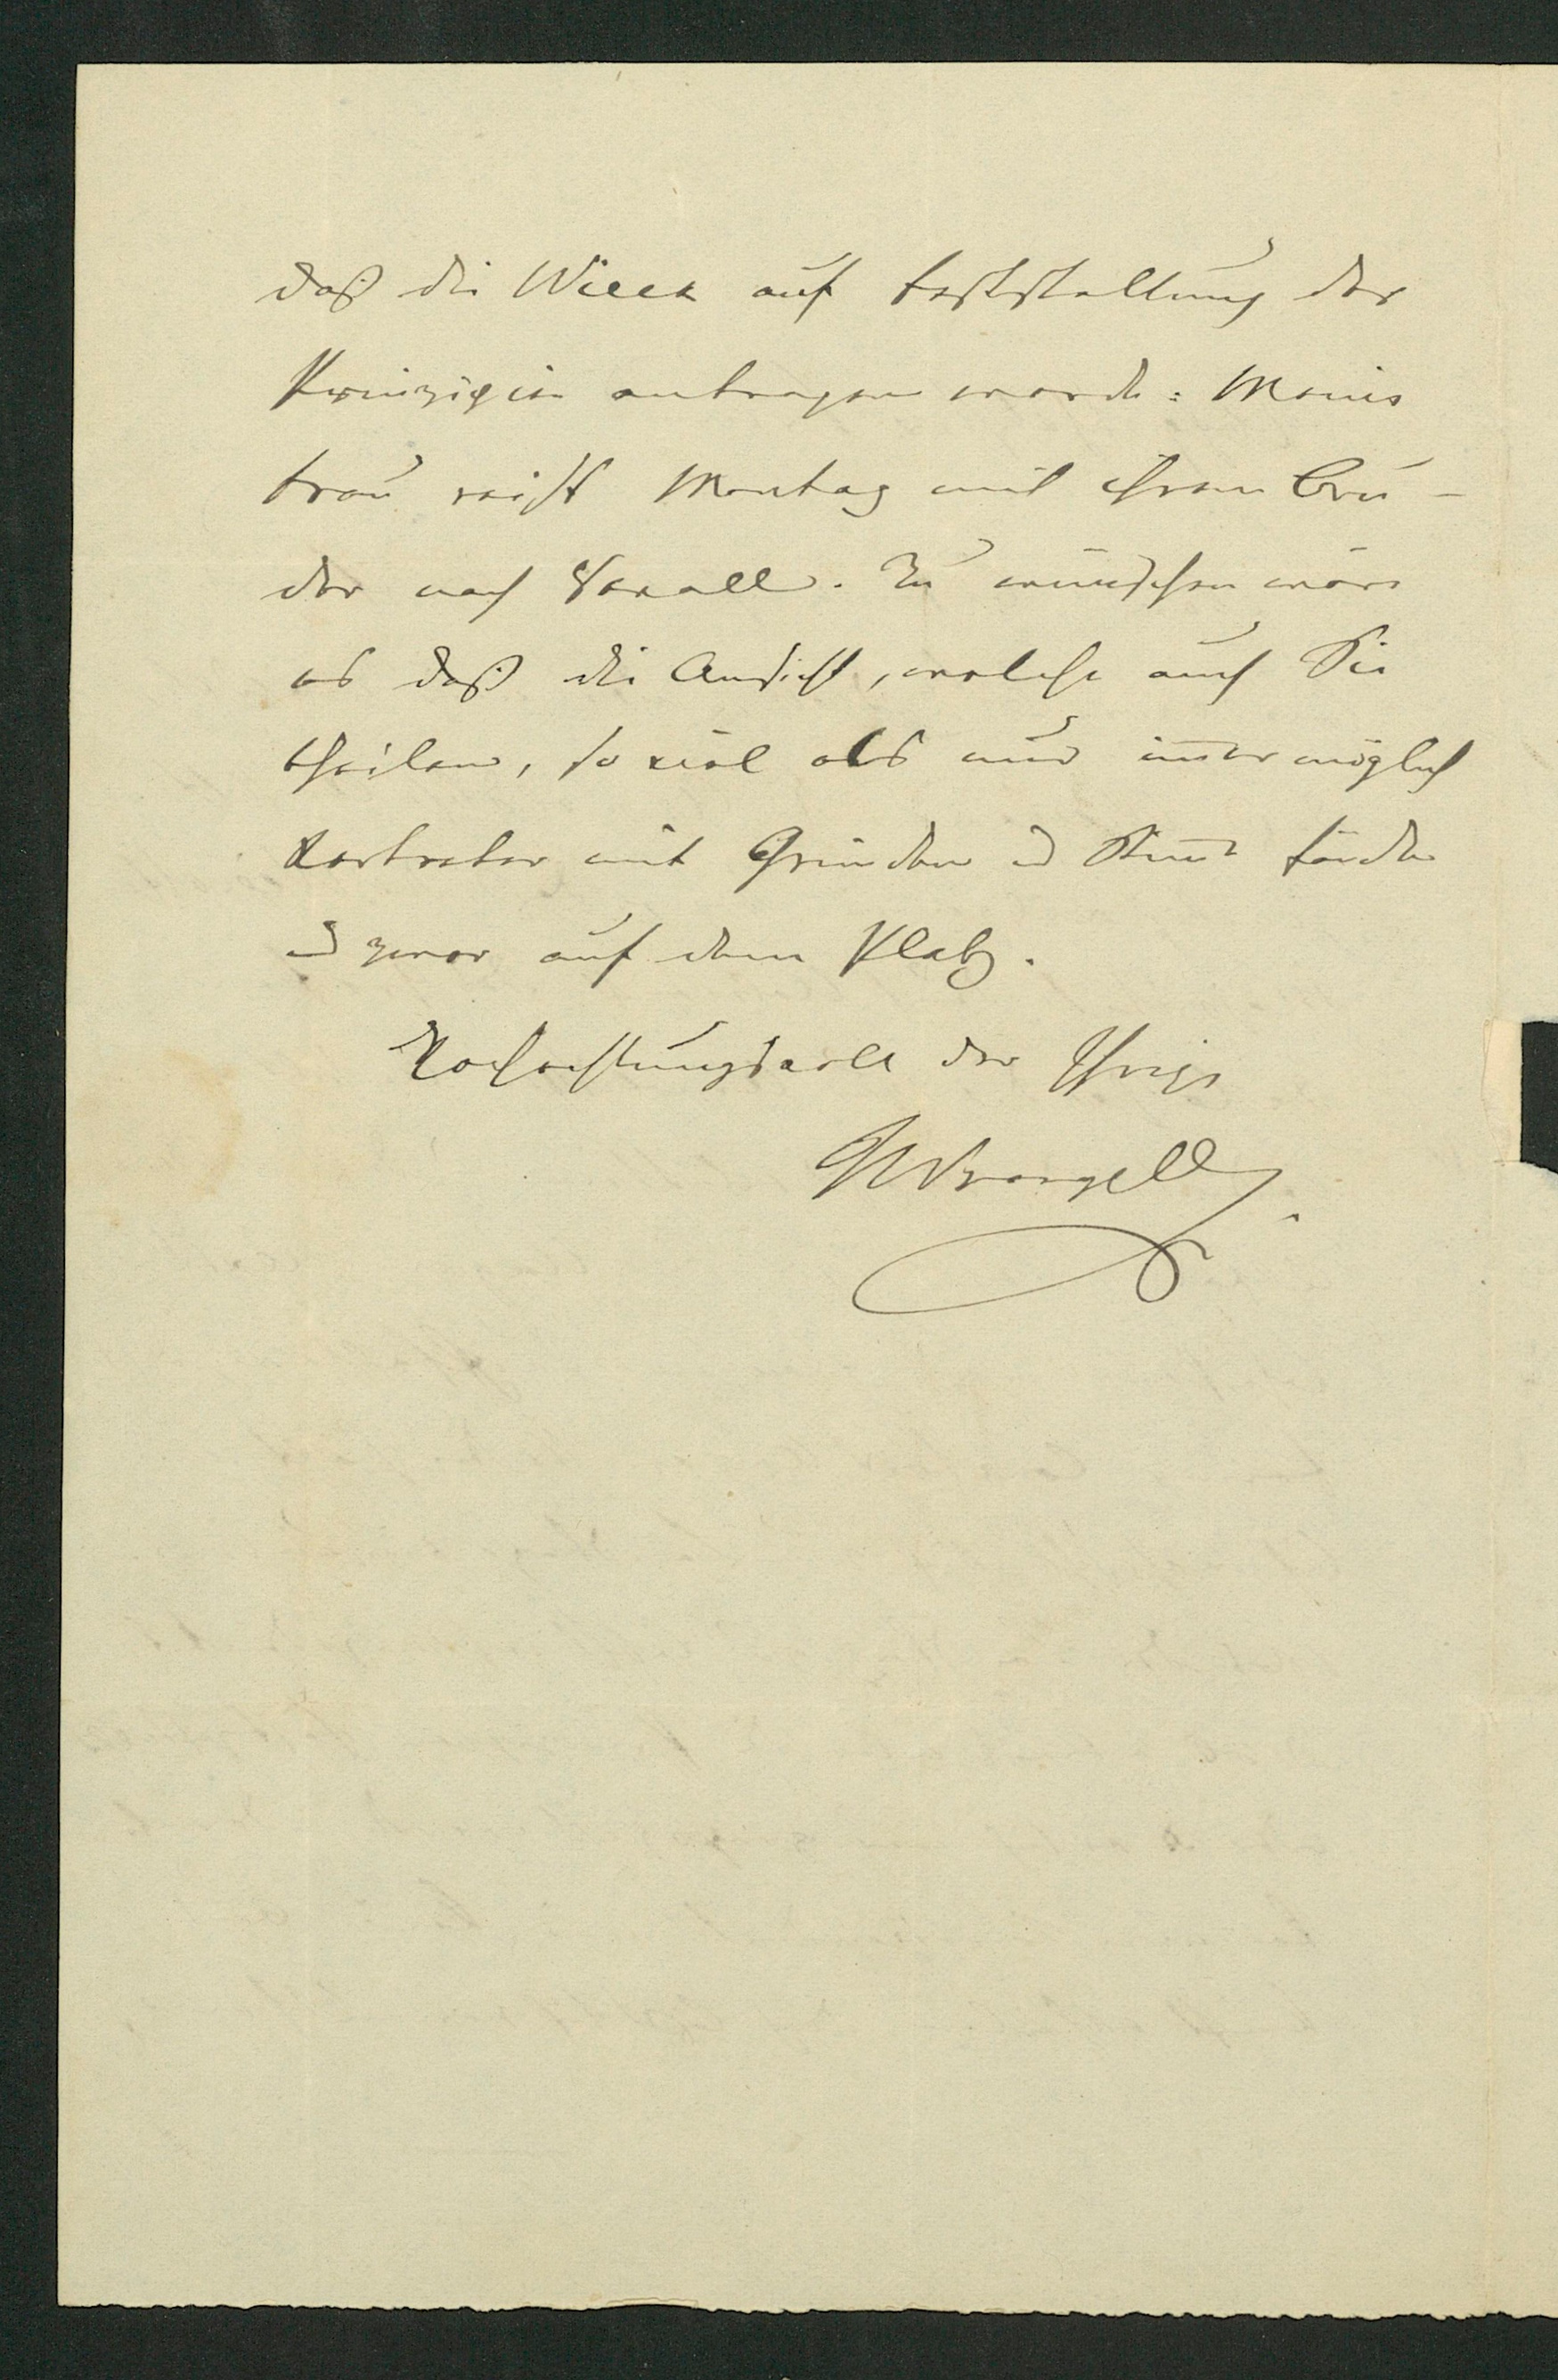 daß die Wieck auf Feststellung der
Principien antragen werde: Meine
Frau reist Montag mit ihrem Bru-
der nach Reval. Zu wünschen wäre
es daß die Ansicht, welche auch Sie
theilen, so viel als nur im̅er möglich
Vertreter mit Gründen u Stim̅e fände
u zwar auf dem Platz.
Hochachtungsvoll der Ihrige
Wrangell